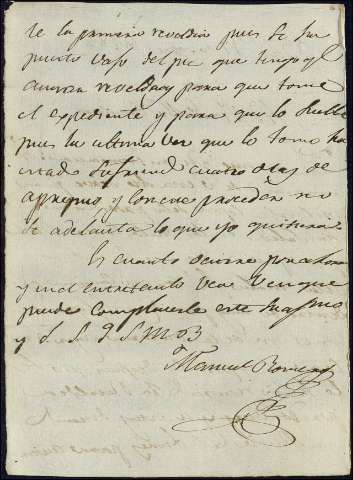 te la primera reveldia pues se su
puesto baso del pie que tengo q
acusar reveldia y para que tome
el expediente y para que lo
pues la ultima vez que lo tomo ha
estado sufriendo cuatro dias de
apremio y con este proceder no
se adelanta lo que yo quisiera
Es cuanto ocurre por ahora
y in el entretanto vea Vm que
puede complacerle este su afmo
y S. S. Q. S. M. B.
Manuel